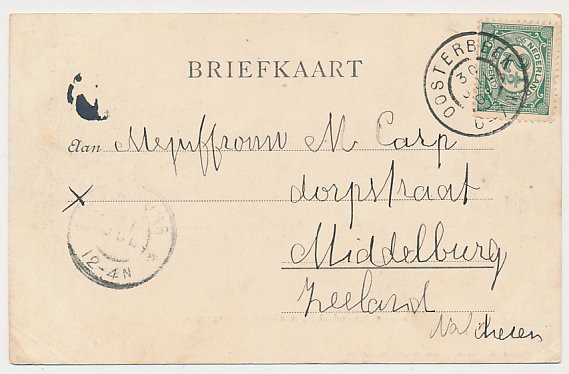 BRIEFKAART
OOSTERBEEK
NEDERLAND
Aan Mejuffrouw M. Carp
X
dorpstraat
Middelburg
Zeeland
12-4N